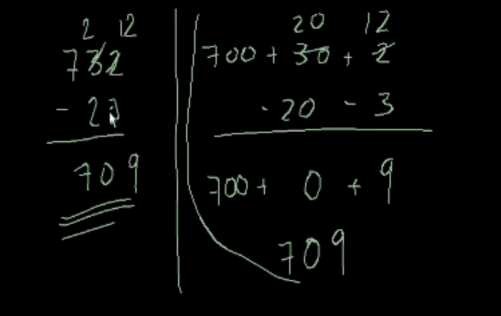 2 12
732
- 23
709
20 12
700 + 30 + 2
- 20 - 3
700 + 0 + 9
709